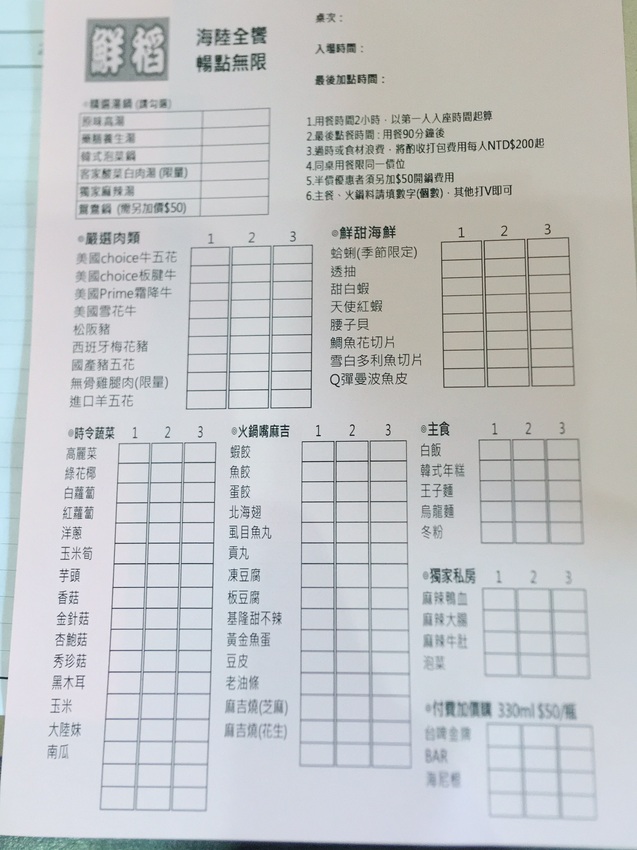 鮮稻
海陸全饗
暢點無限
桌次：
入場時間：
最後加點時間：
1.用餐時間2小時，以第一人入座時間起算
2.最後點餐時間 : 用餐90分鐘後
3.過時或食材浪費，將酌收打包費用每人NTD$200起
4.同桌用餐限同一價位
5.半價優惠者須另加$50開鍋費用
6.主餐、火鍋料請填數字(個數)，其他打V即可
精選湯鍋 (請勾選)
原味高湯
藥膳養生湯
韓式泡菜鍋
客家酸菜白肉湯 (限量)
獨家麻辣湯
鴛鴦鍋 (需另加價$50)
嚴選肉類 1 2 3
美國choice牛五花
美國choice板腱牛
美國Prime霜降牛
美國雪花牛
松阪豬
西班牙梅花豬
國產豬五花
無骨雞腿肉(限量)
進口羊五花
鮮甜海鮮 1 2 3
蛤蜊(季節限定)
透抽
甜白蝦
天使紅蝦
腰子貝
鯛魚花切片
雪白多利魚切片
Q彈曼波魚皮
時令蔬菜 1 2 3
高麗菜
綠花椰
白蘿蔔
紅蘿蔔
洋蔥
玉米筍
芋頭
香菇
金針菇
杏鮑菇
秀珍菇
黑木耳
玉米
大陸妹
南瓜
火鍋嘴麻吉 1 2 3
蝦餃
魚餃
蛋餃
北海翅
虱目魚丸
貢丸
凍豆腐
板豆腐
基隆甜不辣
黃金魚蛋
豆皮
老油條
麻吉燒(芝麻)
麻吉燒(花生)
主食 1 2 3
白飯
韓式年糕
王子麵
烏龍麵
冬粉
獨家私房 1 2 3
麻辣鴨血
麻辣大腸
麻辣牛肚
泡菜
付費加價購 330ml $50/瓶
台啤金牌
BAR
海尼根